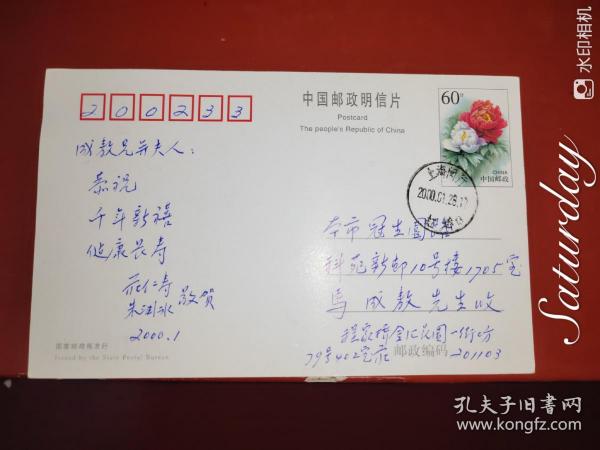 200233
中国邮政明信片
Postcard
The people's Republic of China
60分
CHINA
中国邮政
上海
2000.01.28.17
成敖兄并夫人：
恭祝
千年新禧
健康长寿
庄仁寿
敬賀
2000.1
本市冠生園路
科苑新邨10号楼1705室
马成敖先生收
79号402室庄
邮政编码
201103
国家邮政局发行
Issued by the State Postal Bureau
水印相机
Saturday
孔夫子旧书网
www.kongfz.com